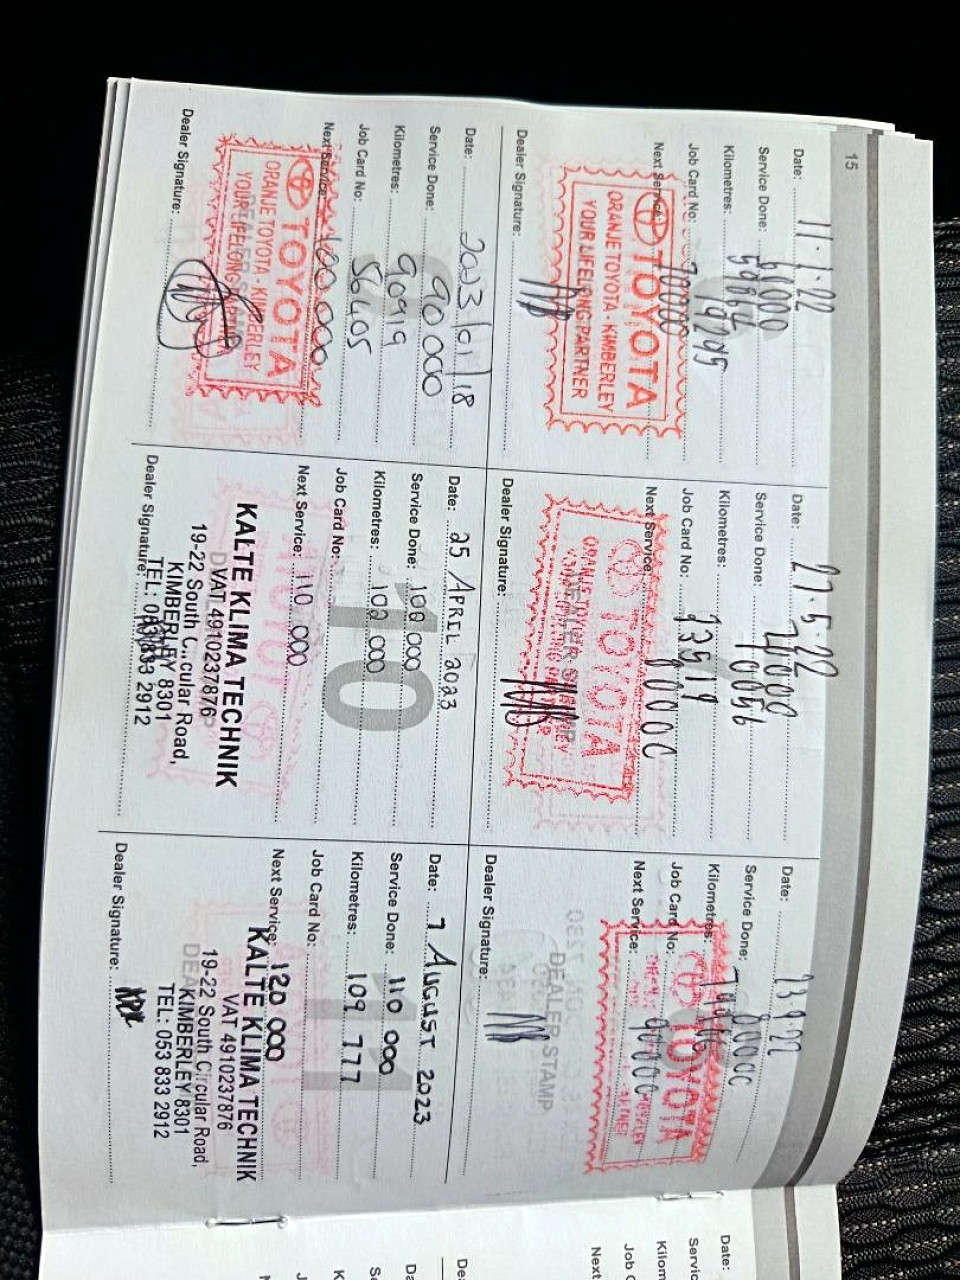 15
Date: 11.1.22
Service Done: 60000
Kilometres: 59864
Job Card No: 19295
Next Service: 70000
TOYOTA
ORANJE TOYOTA - KIMBERLEY
YOUR LIFELONG PARTNER
Dealer Signature:
Date: 27.5.22
Service Done: 70000
Kilometres: 70056
Job Card No: 73519
Next Service: 80000
TOYOTA
DEALER STAMP
Dealer Signature:
Date: 23.9.22
Service Done: 80000
Kilometres:
Job Card No:
Next Service: 90000
TOYOTA
DEALER STAMP
Dealer Signature:
Date: 2023/01/18
Service Done: 90 000
Kilometres: 90919
Job Card No: 56405
Next Service: 100 000
TOYOTA
ORANJE TOYOTA - KIMBERLEY
YOUR LIFELONG PARTNER
Dealer Signature:
10
Date: 25 APRIL 2023
Service Done: 100 000
Kilometres: 100 000
Job Card No:
Next Service: 110 000
KALTE KLIMA TECHNIK
VAT 4910237876
19-22 South Circular Road,
KIMBERLEY 8301
TEL: 053 833 2912
Dealer Signature:
11
Date: 7 AUGUST 2023
Service Done: 110 000
Kilometres: 109 777
Job Card No:
Next Service: 120 000
KALTE KLIMA TECHNIK
VAT 4910237876
19-22 South Circular Road,
KIMBERLEY 8301
TEL: 053 833 2912
Dealer Signature:
Date:
Servic
Kilom
Job C
Next
De
Da
Se
K
J